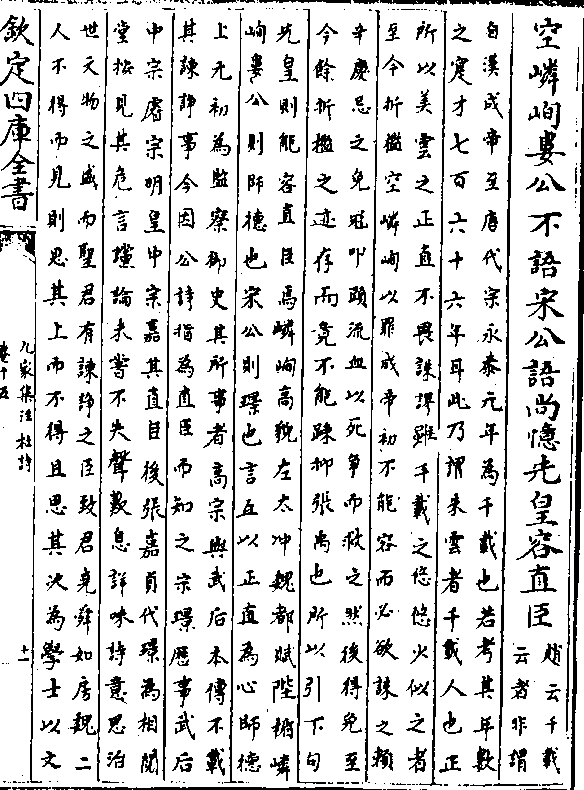 空嶙峋婁公不語宋公語尚憶先皇容直臣
趙云千載
云者非謂
自漢成帝至唐代宗永泰元年為千載也若考其年數
之寔才七百六十六年耳此乃謂朱雲者千載人也正
所以美雲之正直不畏誅謬雖千載之悠悠火似之者
至今折檻空嶙峋以罪成帝初不能容而必欲誅之賴
辛慶忌之免冠叩頭流血以死爭而救之然後得免至
今餘折檻之迹存而竟不能踈抑張禹也所以引下句
先皇則能容直臣焉嶙峋高貌左太冲魏都賦陛楯嶙
峋婁公則師德也宋公則璟也言五以正直為心師德
上元初為監察御史其所事者高宗與武后本傳不載
其諫諍事今因公詩指為直臣而知之宗璟歷事武后
中宗睿宗明皇中宗嘉其直臣後張嘉貞代璟為相閱
堂按見其危言讜論未嘗不失聲歎息詳味詩意思治
世文物之盛而聖君有諫諍之臣致君堯舜如房魏二
人不得而見則思其上而不得且思其次為學士以文
欽定四庫全書
九家集注杜詩
卷十五
十一